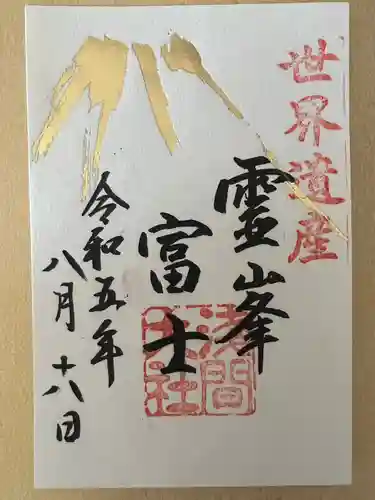 世界遺産
霊峯
富士
浅間
大社
令和五年
八月十八日